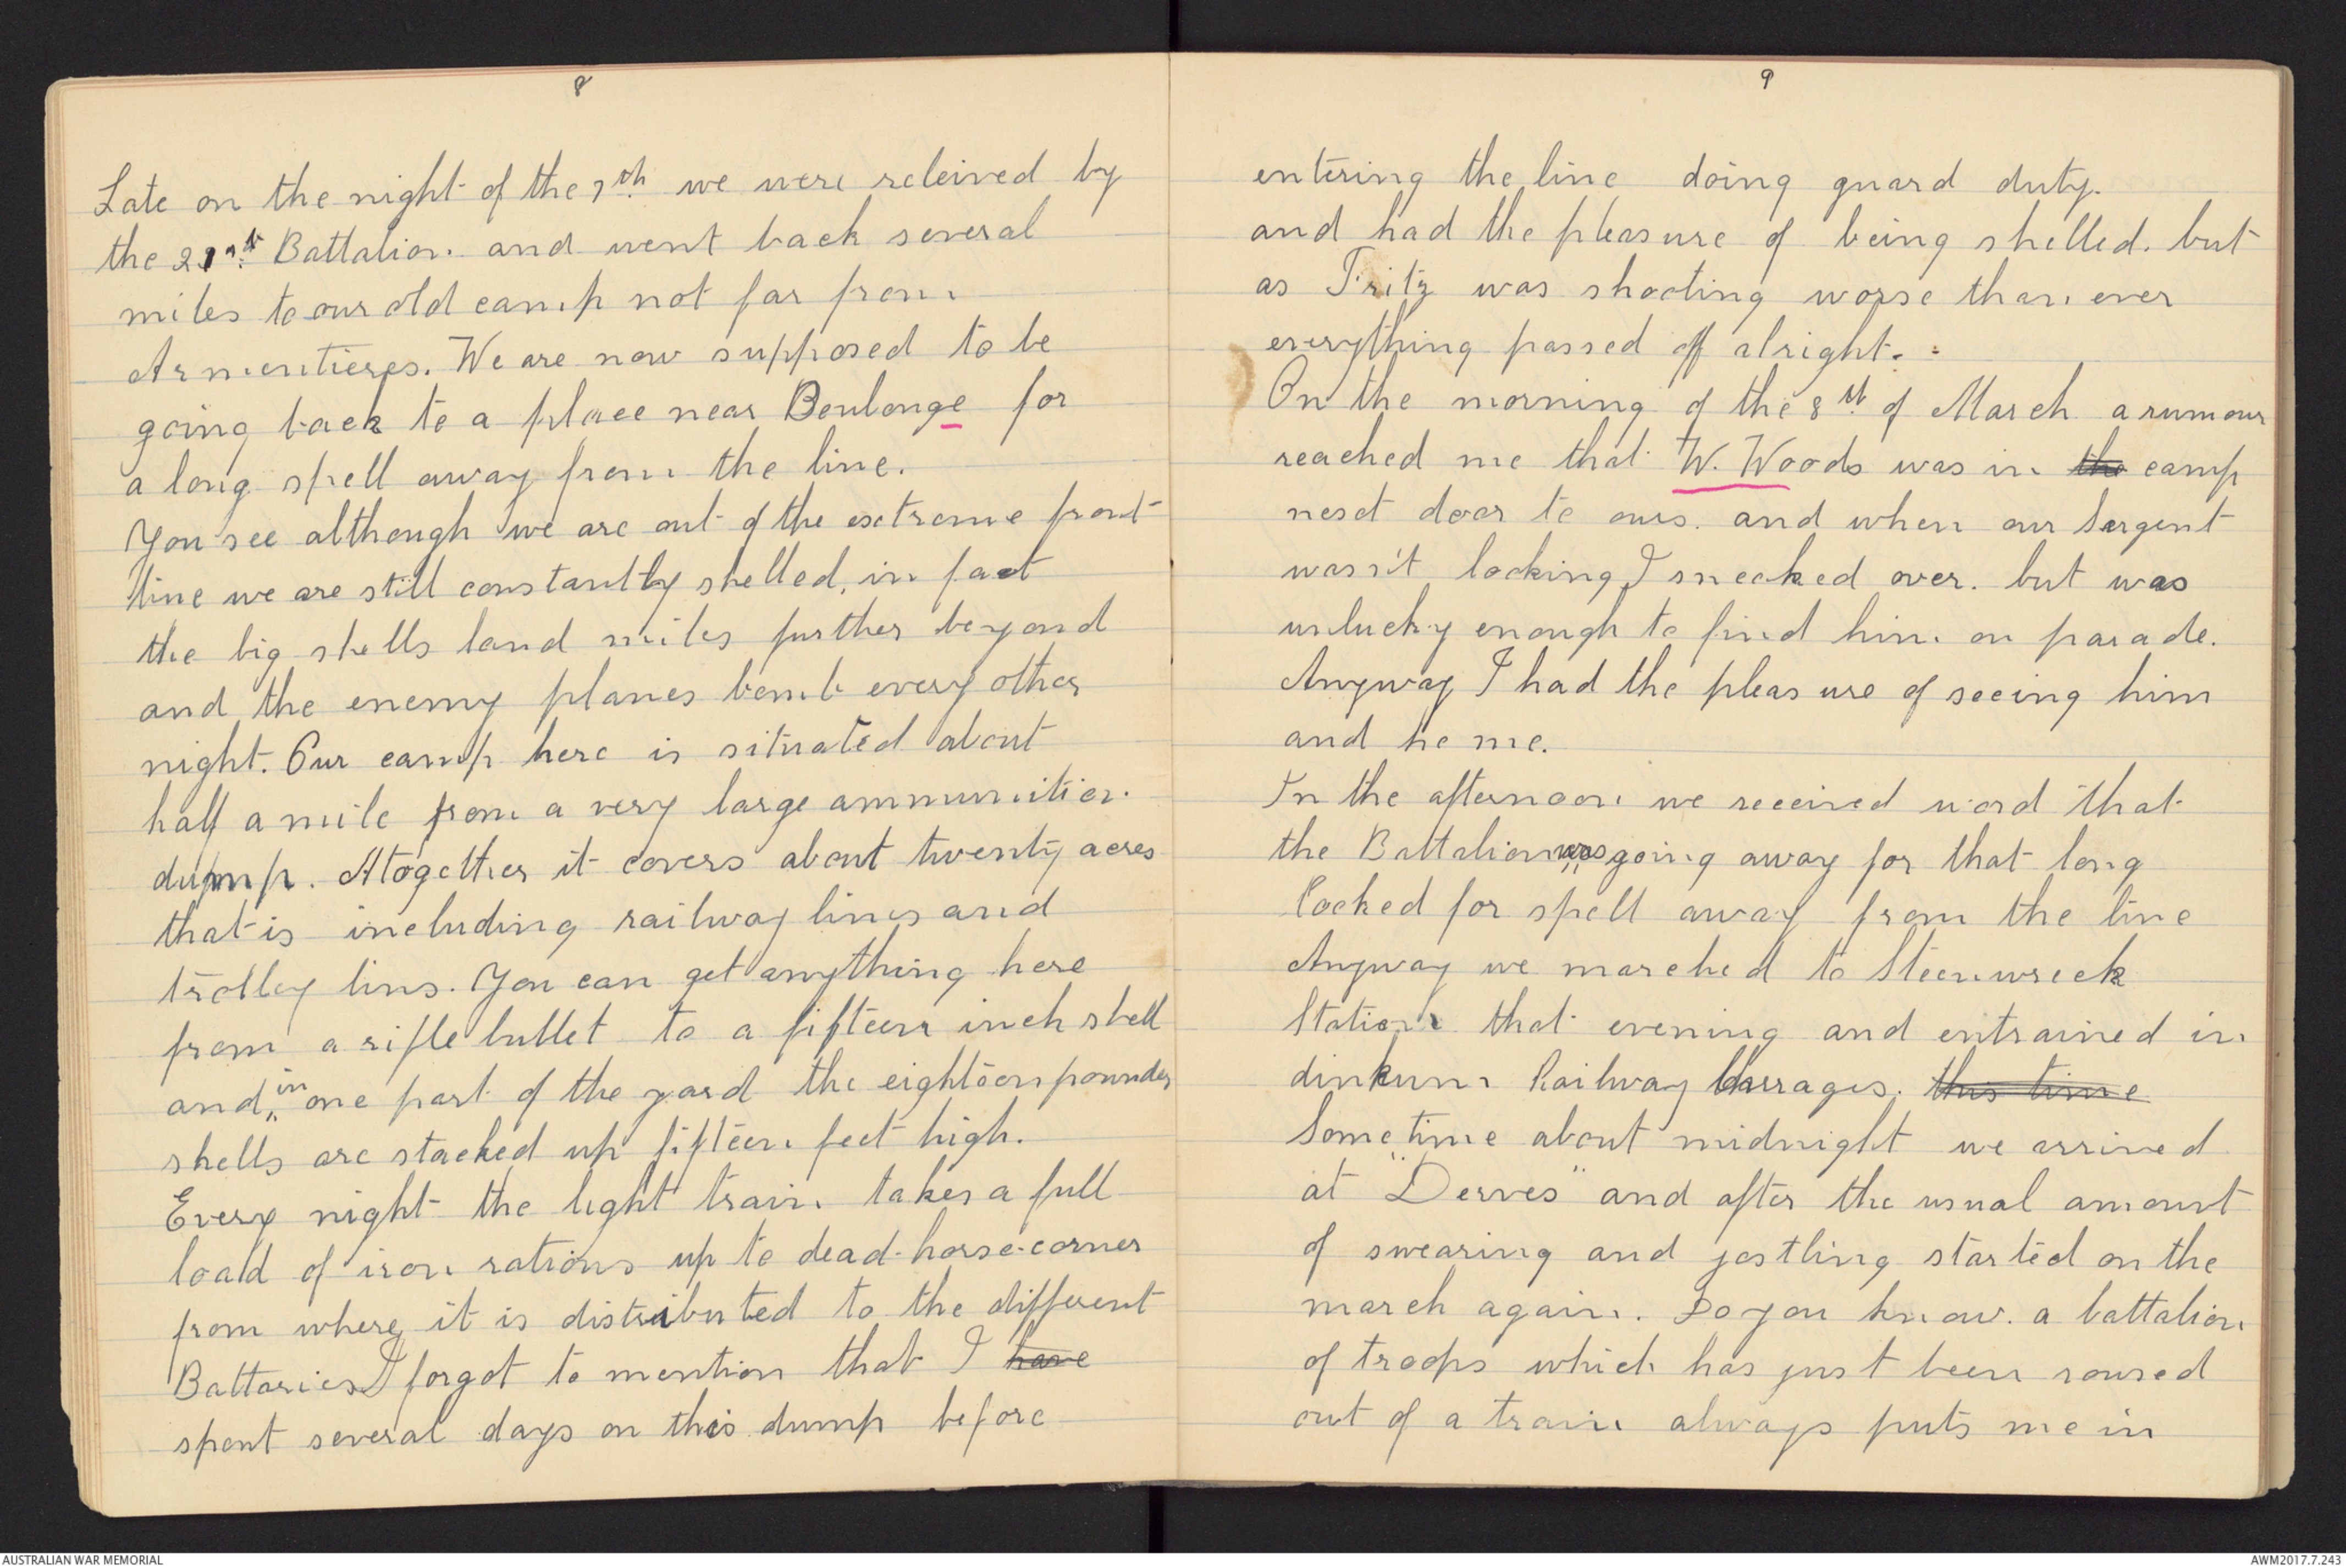 8
Late on the night of the 7th we were releived by
the 21st Battalion. and went back several
miles to our old camp not far from
Armentieres. We are now supposed to be
going back to a place near Boulonge for
a long spell away from the line.
You see although we are out of the extreme front
line we are still constantly shelled, in fact
the big shells land miles further beyond
and the enemy planes bomb every other
night. Our camp here is situated about
half a mile from a very large ammunition.
dump. Altogether it covers about twenty acres
that is including railway lines and
trolley lins. You can get anything here
from a rifle bullet to a fifteen inch shell
and in one part of the yard the eighteen pounder
shells are stacked up fifteen feet high.
Every night the light train takes a full
load of iron rations up to dead-horse-corner
from where it is distributed to the different
Battaries I forgot to mention that I have
spent several days on this dump before
9
entering the line doing guard duty.
and had the pleasure of being shelled. but
as Fritz was shooting worse than ever
everything passed off alright.
On the morning of the 8th of March a rumour
reached me that W. Woods was in the camp
next door to ours. and when our Sergent
wasn't looking I sneaked over. but was
unlucky enough to find him on parade.
Anyway I had the pleasure of seeing him
and he me.
In the afternoon we received word that
the Battalion was going away for that long
looked for spell away from the line
Anyway we marched to Steenwreck
Station that evening and entrained in
dinkum Railway Carrages. this time
Sometime about midnight we arrived
at "Desves" and after the usual amount
of swearing and jostling started on the
march again. Do you know. a battalion
of troops which has just been roused
out of a train always puts me in
AUSTRALIAN WAR MEMORIAL
AWM2017.7.243